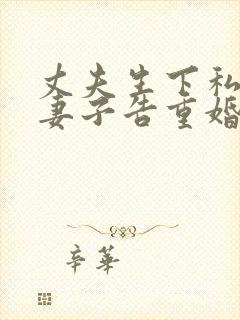 丈夫生下私
妻子告重婚
辛华